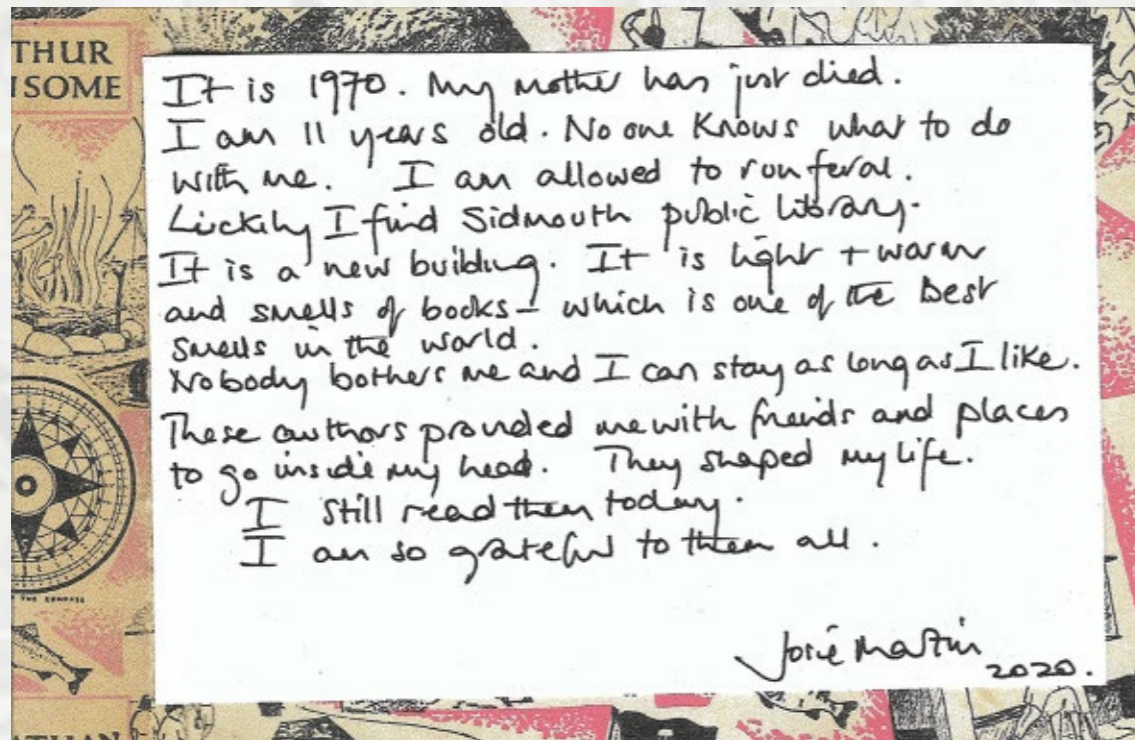 THUR
SOME
It is 1970. My mother has just died.
I am 11 years old. No one knows what to do
with me. I am allowed to run feral.
Luckily I find Sidmouth public library.
It is a new building. It is light + warm
and smells of books - which is one of the Best
smells in the world.
Nobody bothers me and I can stay as long as I like.
These authors provided me with friends and places
to go inside my head. They shaped my life.
I still read them today.
I am so grateful to them all.
Josie Martin
2020.
THE COMPASS
ATHAN